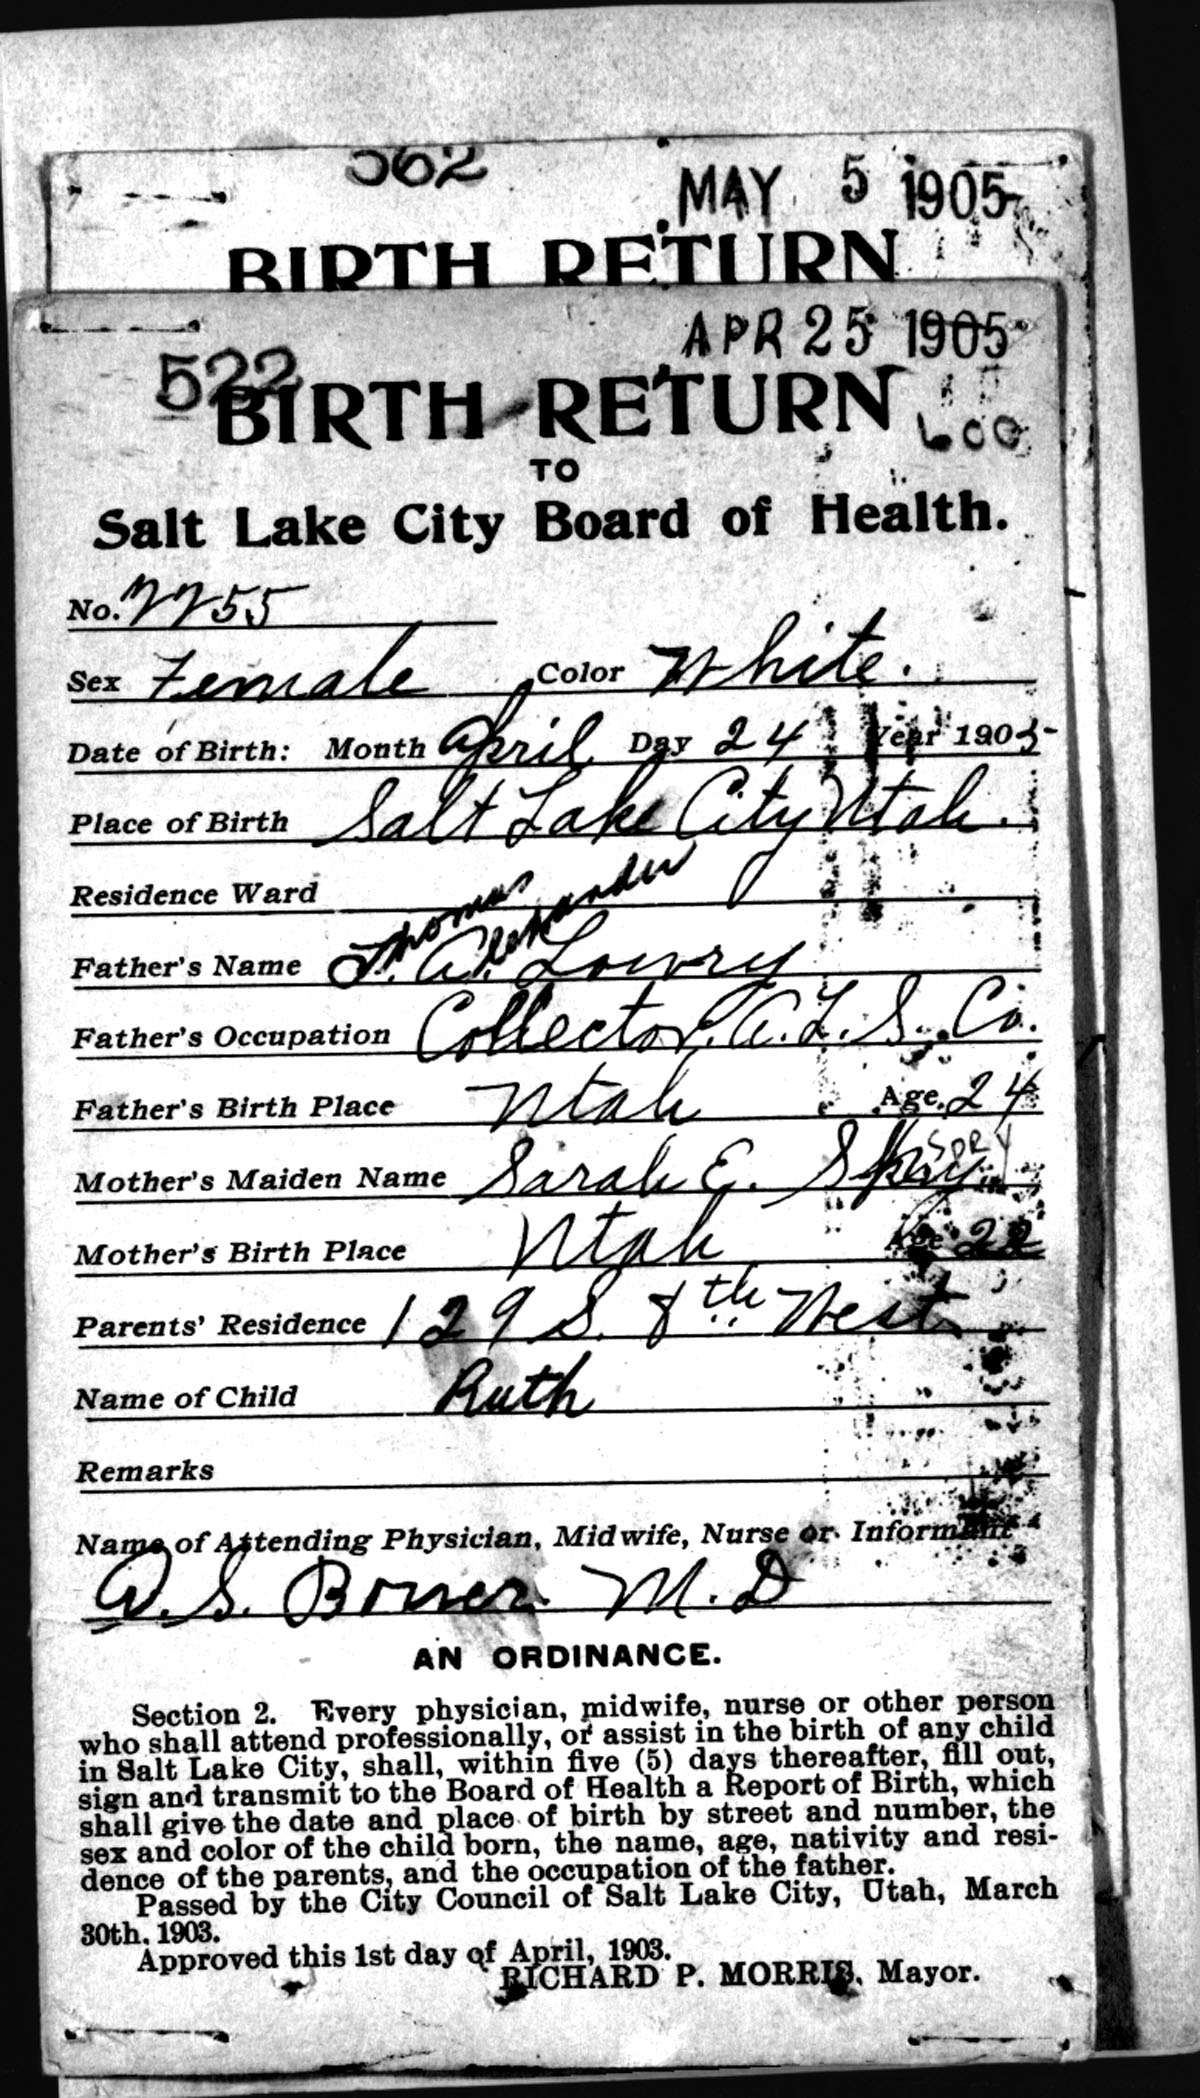 562
MAY 5 1905
BIRTH RETURN
APR 25 1905
522
BIRTH RETURN
600
TO
Salt Lake City Board of Health.
No. 7755
Sex Female Color White.
Date of Birth: Month April Day 24 Year 1905
Place of Birth Salt Lake City Utah.
Residence Ward
Thomas Alexander
Father's Name T. A. Lowry
Father's Occupation Collector. A. L. S. Co.
Father's Birth Place Utah Age 24
SPRY
Mother's Maiden Name Sarah E. Spry
Mother's Birth Place Utah Age 22
Parents' Residence 129 S. 8th West
Name of Child Ruth
Remarks
Name of Attending Physician, Midwife, Nurse or Informant
S. Bower M.D
AN ORDINANCE.
Section 2. Every physician, midwife, nurse or other person
who shall attend professionally, or assist in the birth of any child
in Salt Lake City, shall, within five (5) days thereafter, fill out,
sign and transmit to the Board of Health a Report of Birth, which
shall give the date and place of birth by street and number, the
sex and color of the child born, the name, age, nativity and resi-
dence of the parents, and the occupation of the father.
Passed by the City Council of Salt Lake City, Utah, March
30th, 1903.
Approved this 1st day of April, 1903.
RICHARD P. MORRIS, Mayor.